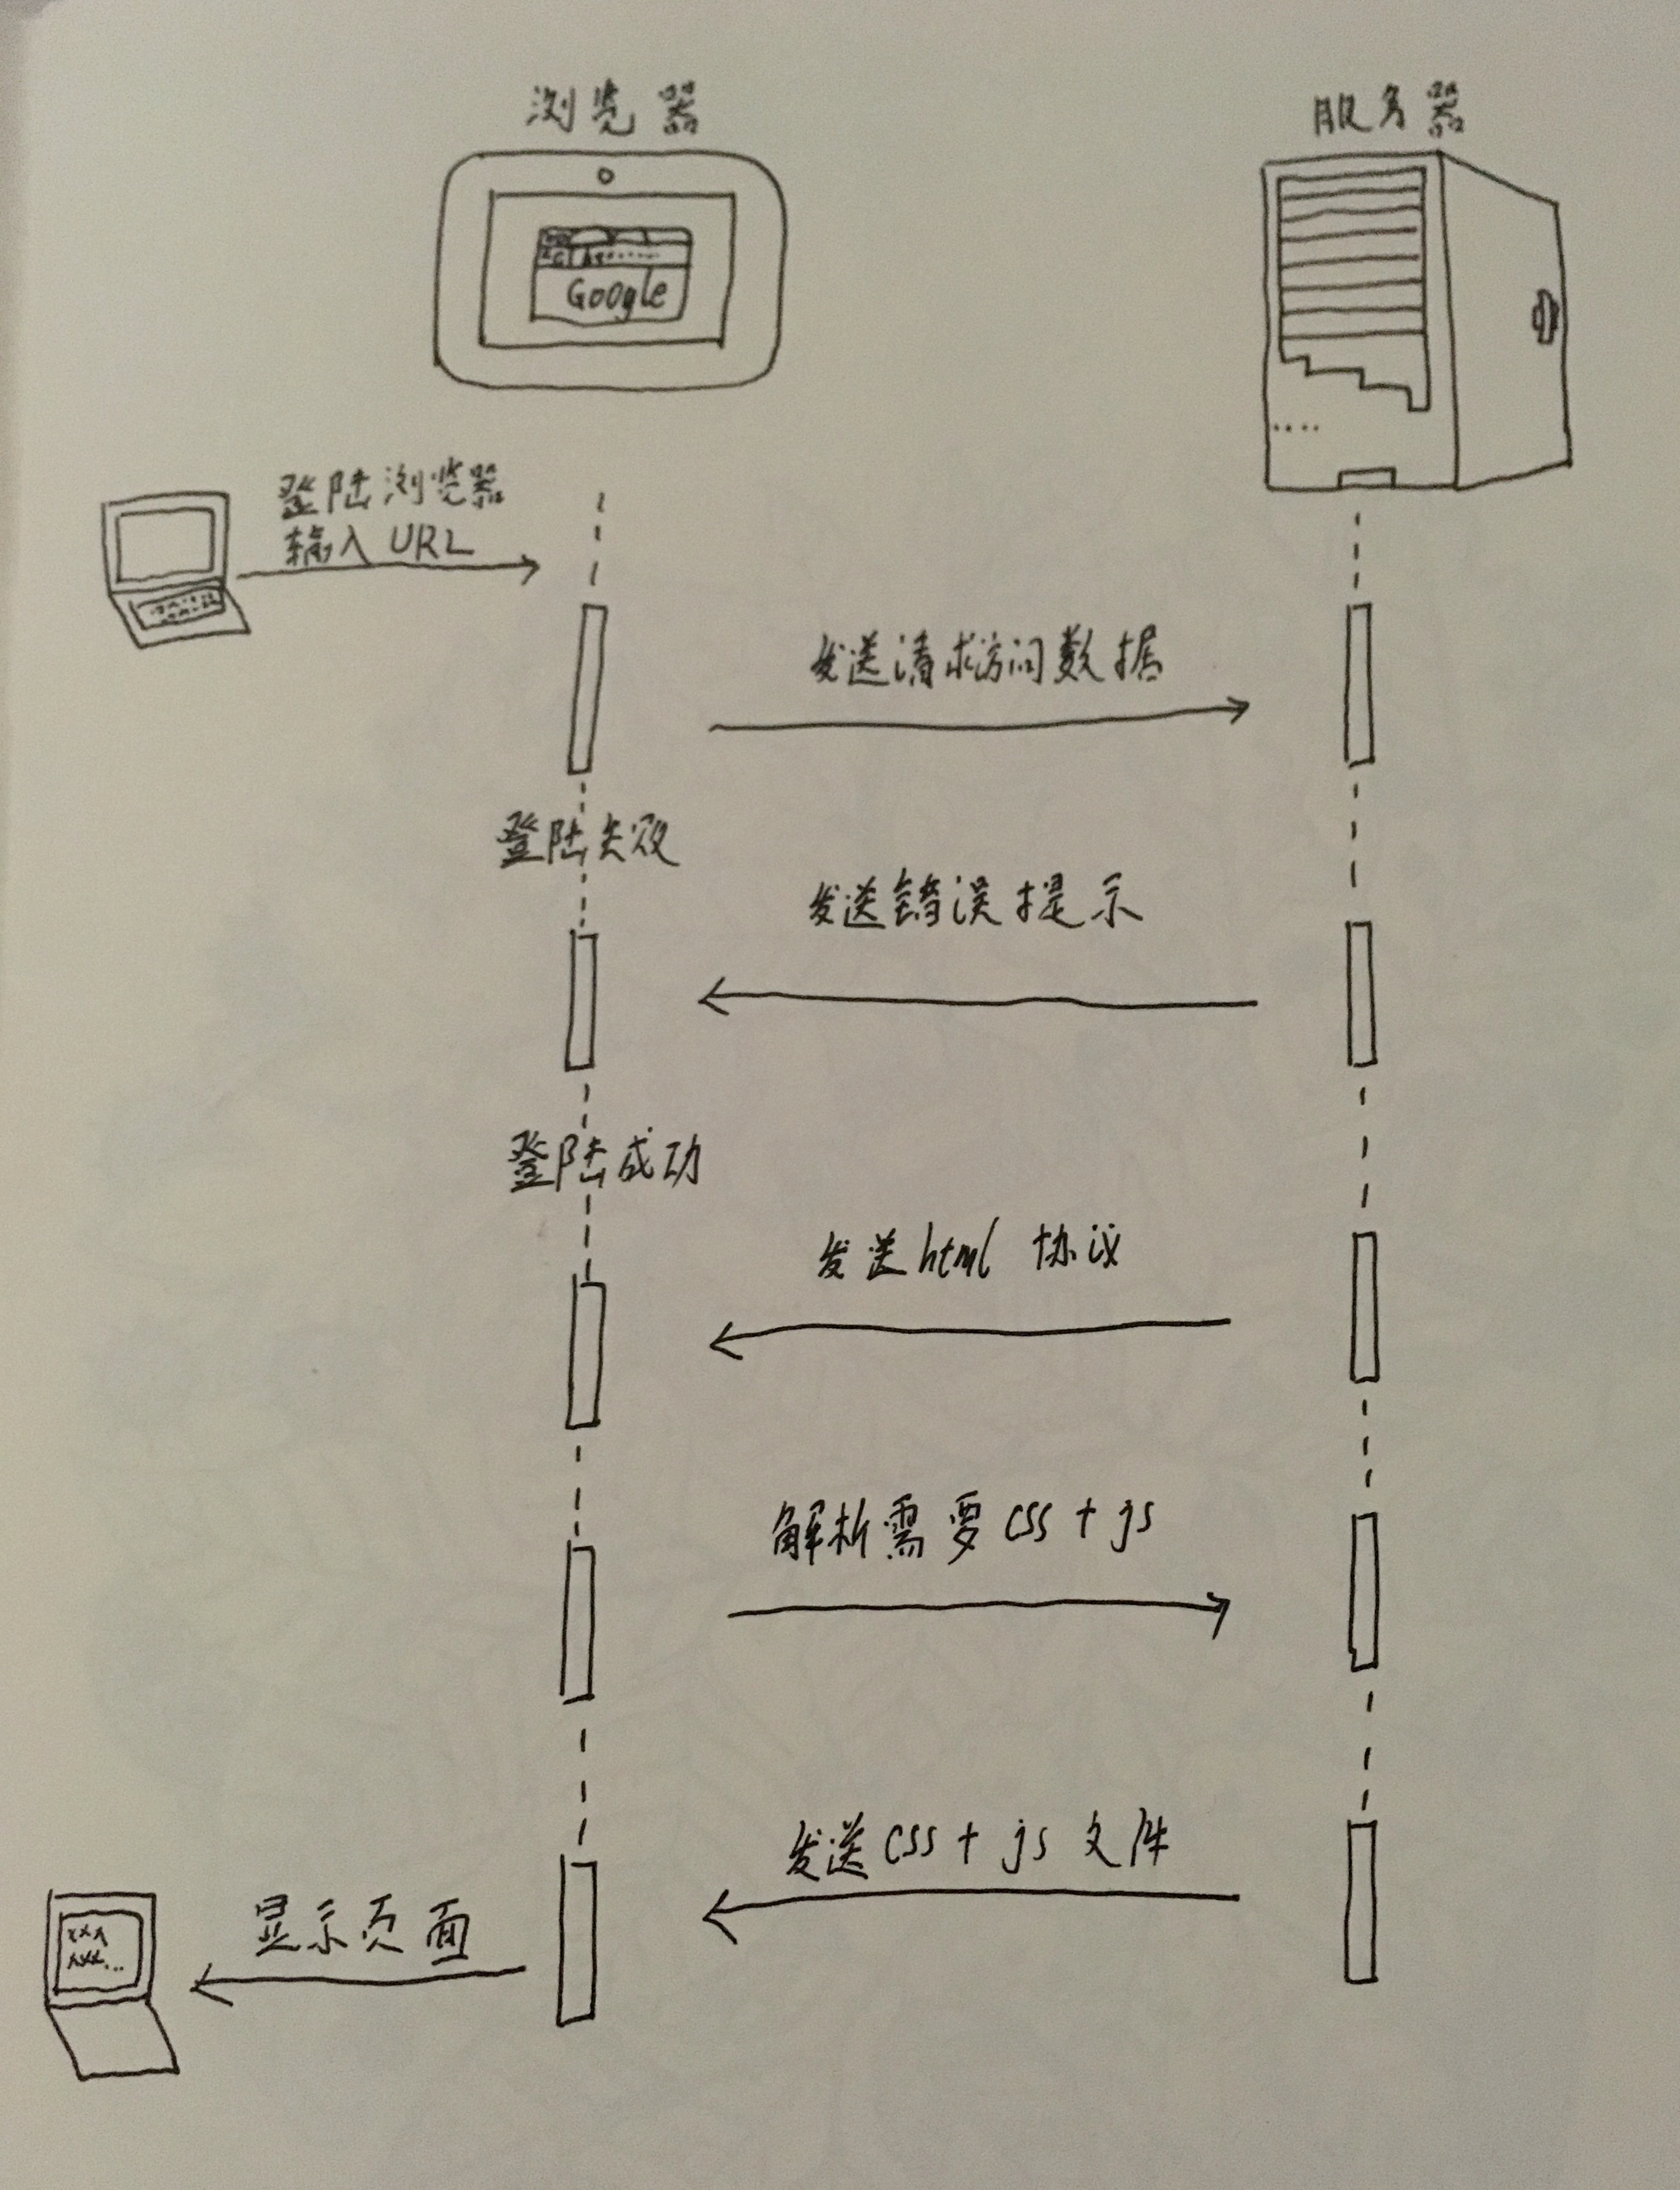 浏览器
服务器
Google
登陆浏览器
输入 URL
发送请求访问数据
登陆失败
发送错误提示
登陆成功
发送 html 协议
解析需要 css + js
发送 css + js 文件
显示页面
xxx
xxx...